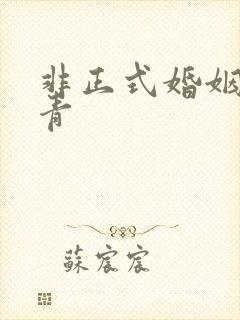 非正式婚姻
青
蘇宸宸